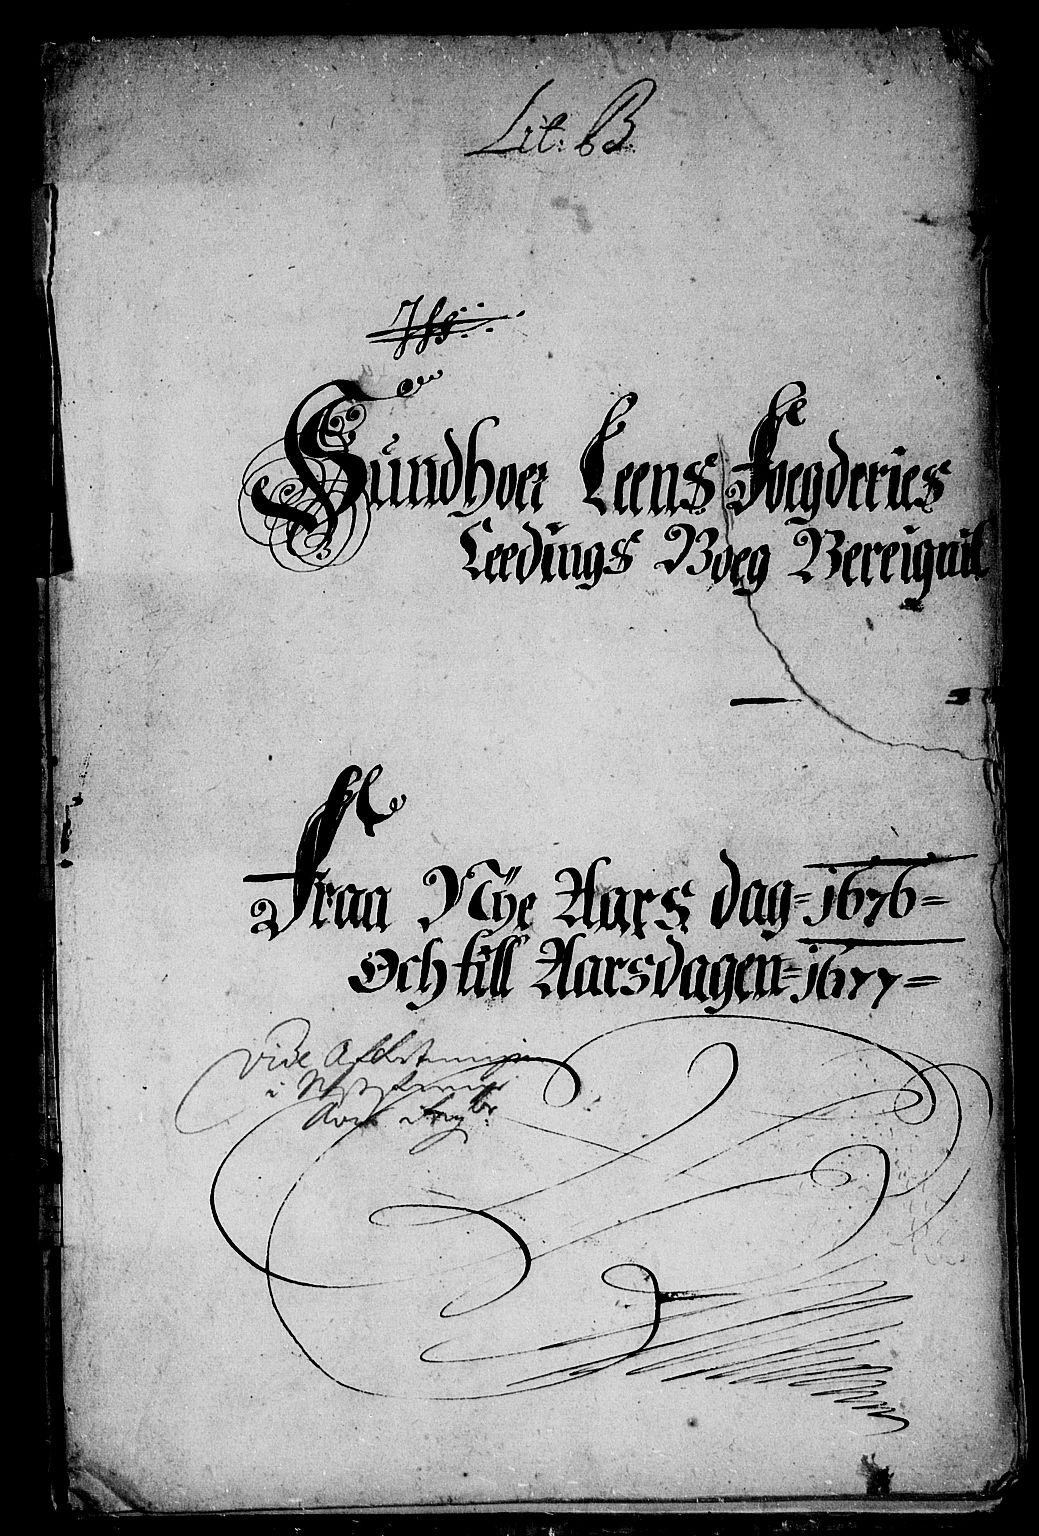 Lit: B.
Sundhoer Leens Foegderies
Leedings Boeg Bereignil
Fraa Nÿe Aars dag = 1676 =
Och till Aarsdagen = 1677 =
vide
i